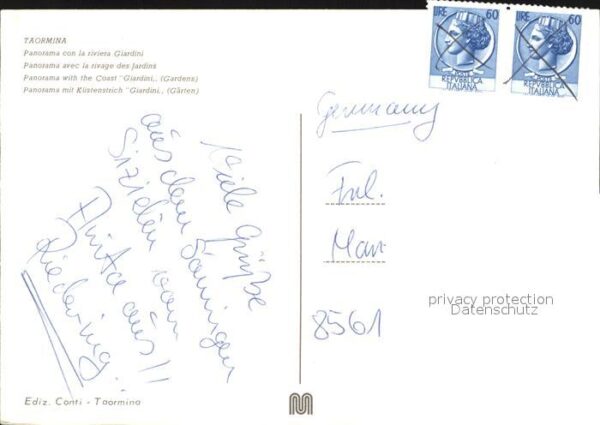 TAORMINA
Panorama con la riviera Giardini
Panorama avec la rivage des Jardins
Panorama with the Coast "Giardini,, (Gardens)
Panorama mit Küstenstrich "Giardini,, (Gärten)
LIRE 60
POSTE
REPVBBLICA
ITALIANA
LIRE 60
POSTE
REPVBBLICA
ITALIANA
Germany
Frl.
8561
privacy protection
Datenschutz
Viele Grüße
aus dem sonnigen
Sizilien vom
aus!!
Ediz. Conti - Taormina